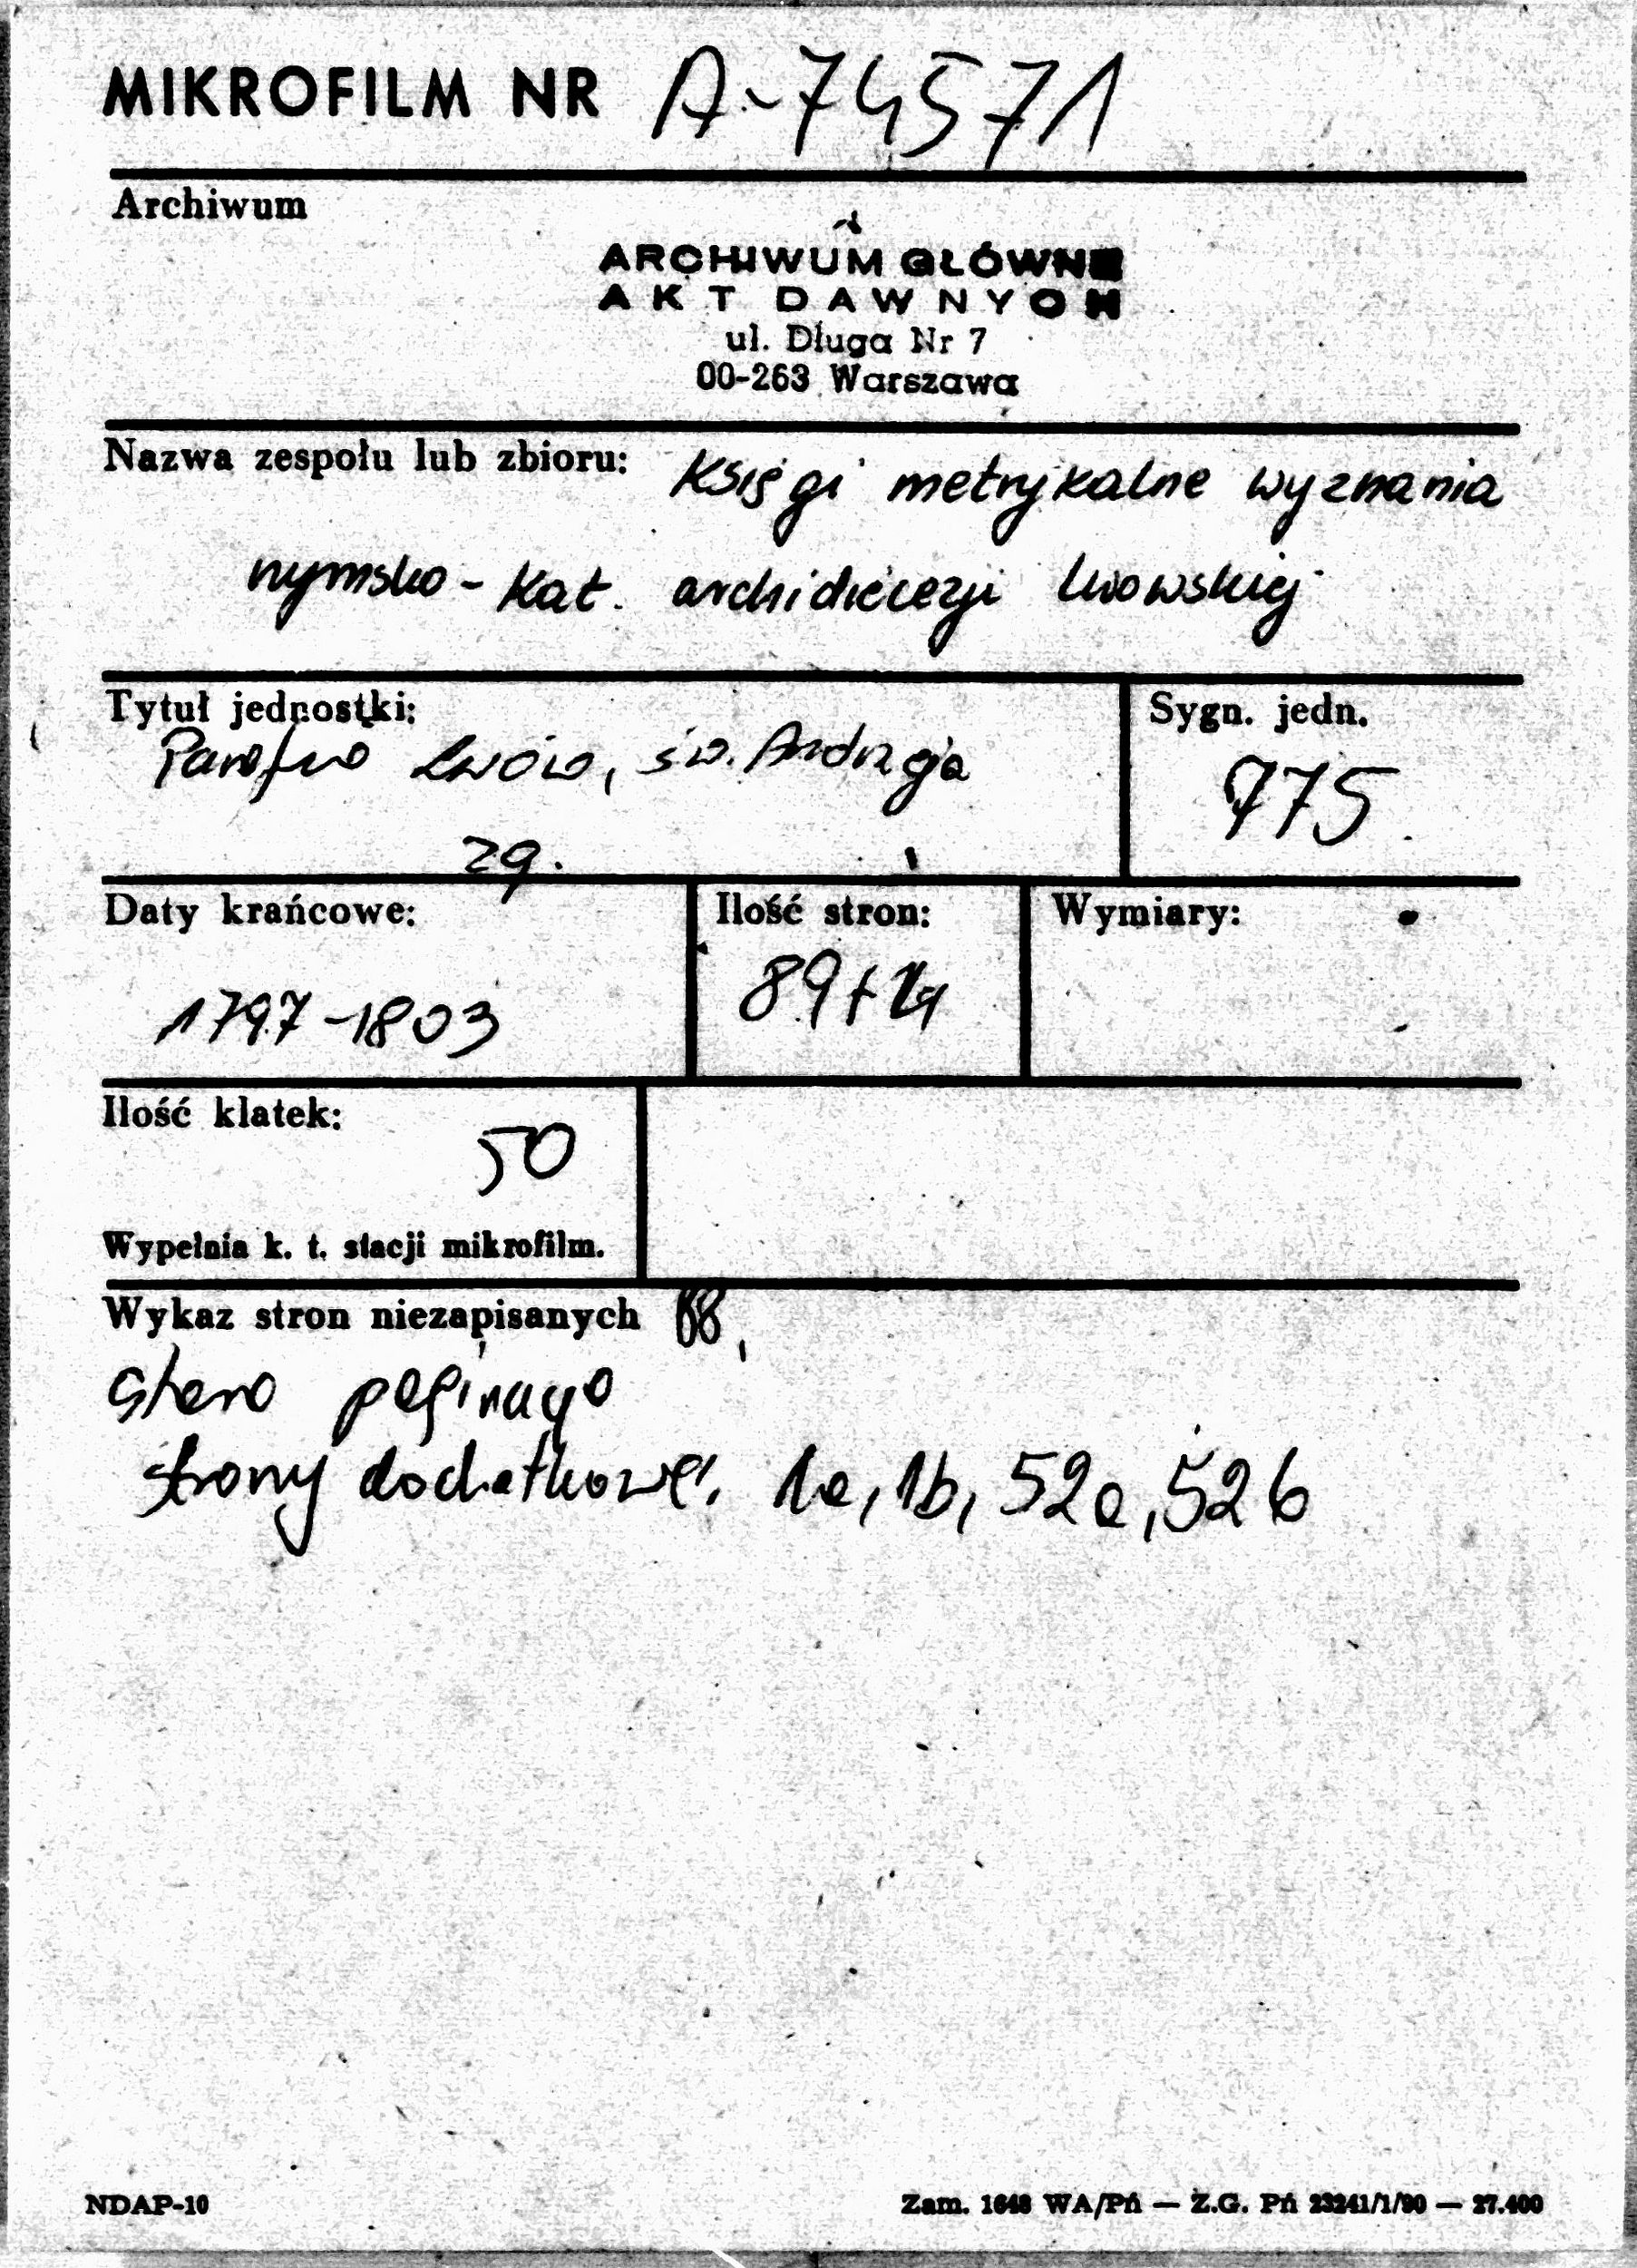 MIKROFILM NR A-74571
Archiwum
ARCHIWUM GŁÓWNE
AKT DAWNYCH
ul. Długa Nr 7
00-263 Warszawa
Nazwa zespołu lub zbioru: Księgi metrykalne wyznania
rzymsko-kat. archidiecezji lwowskiej
Tytuł jednostki:
Sygn. jedn.
Parafia Lwów, św. Andrzeja
775
zg.
Daty krańcowe:
Ilość stron:
Wymiary:
1797-1803
89+
Ilość klatek:
50
Wypełnia k. t. stacji mikrofilm.
Wykaz stron niezapisanych 88,
stara paginacja
strony dodatkowe: 1a, 1b, 52a, 52b
NDAP-10
Zam. 1648 WA/Pń — Z.G. Pń 23241/1/90 — 27.400